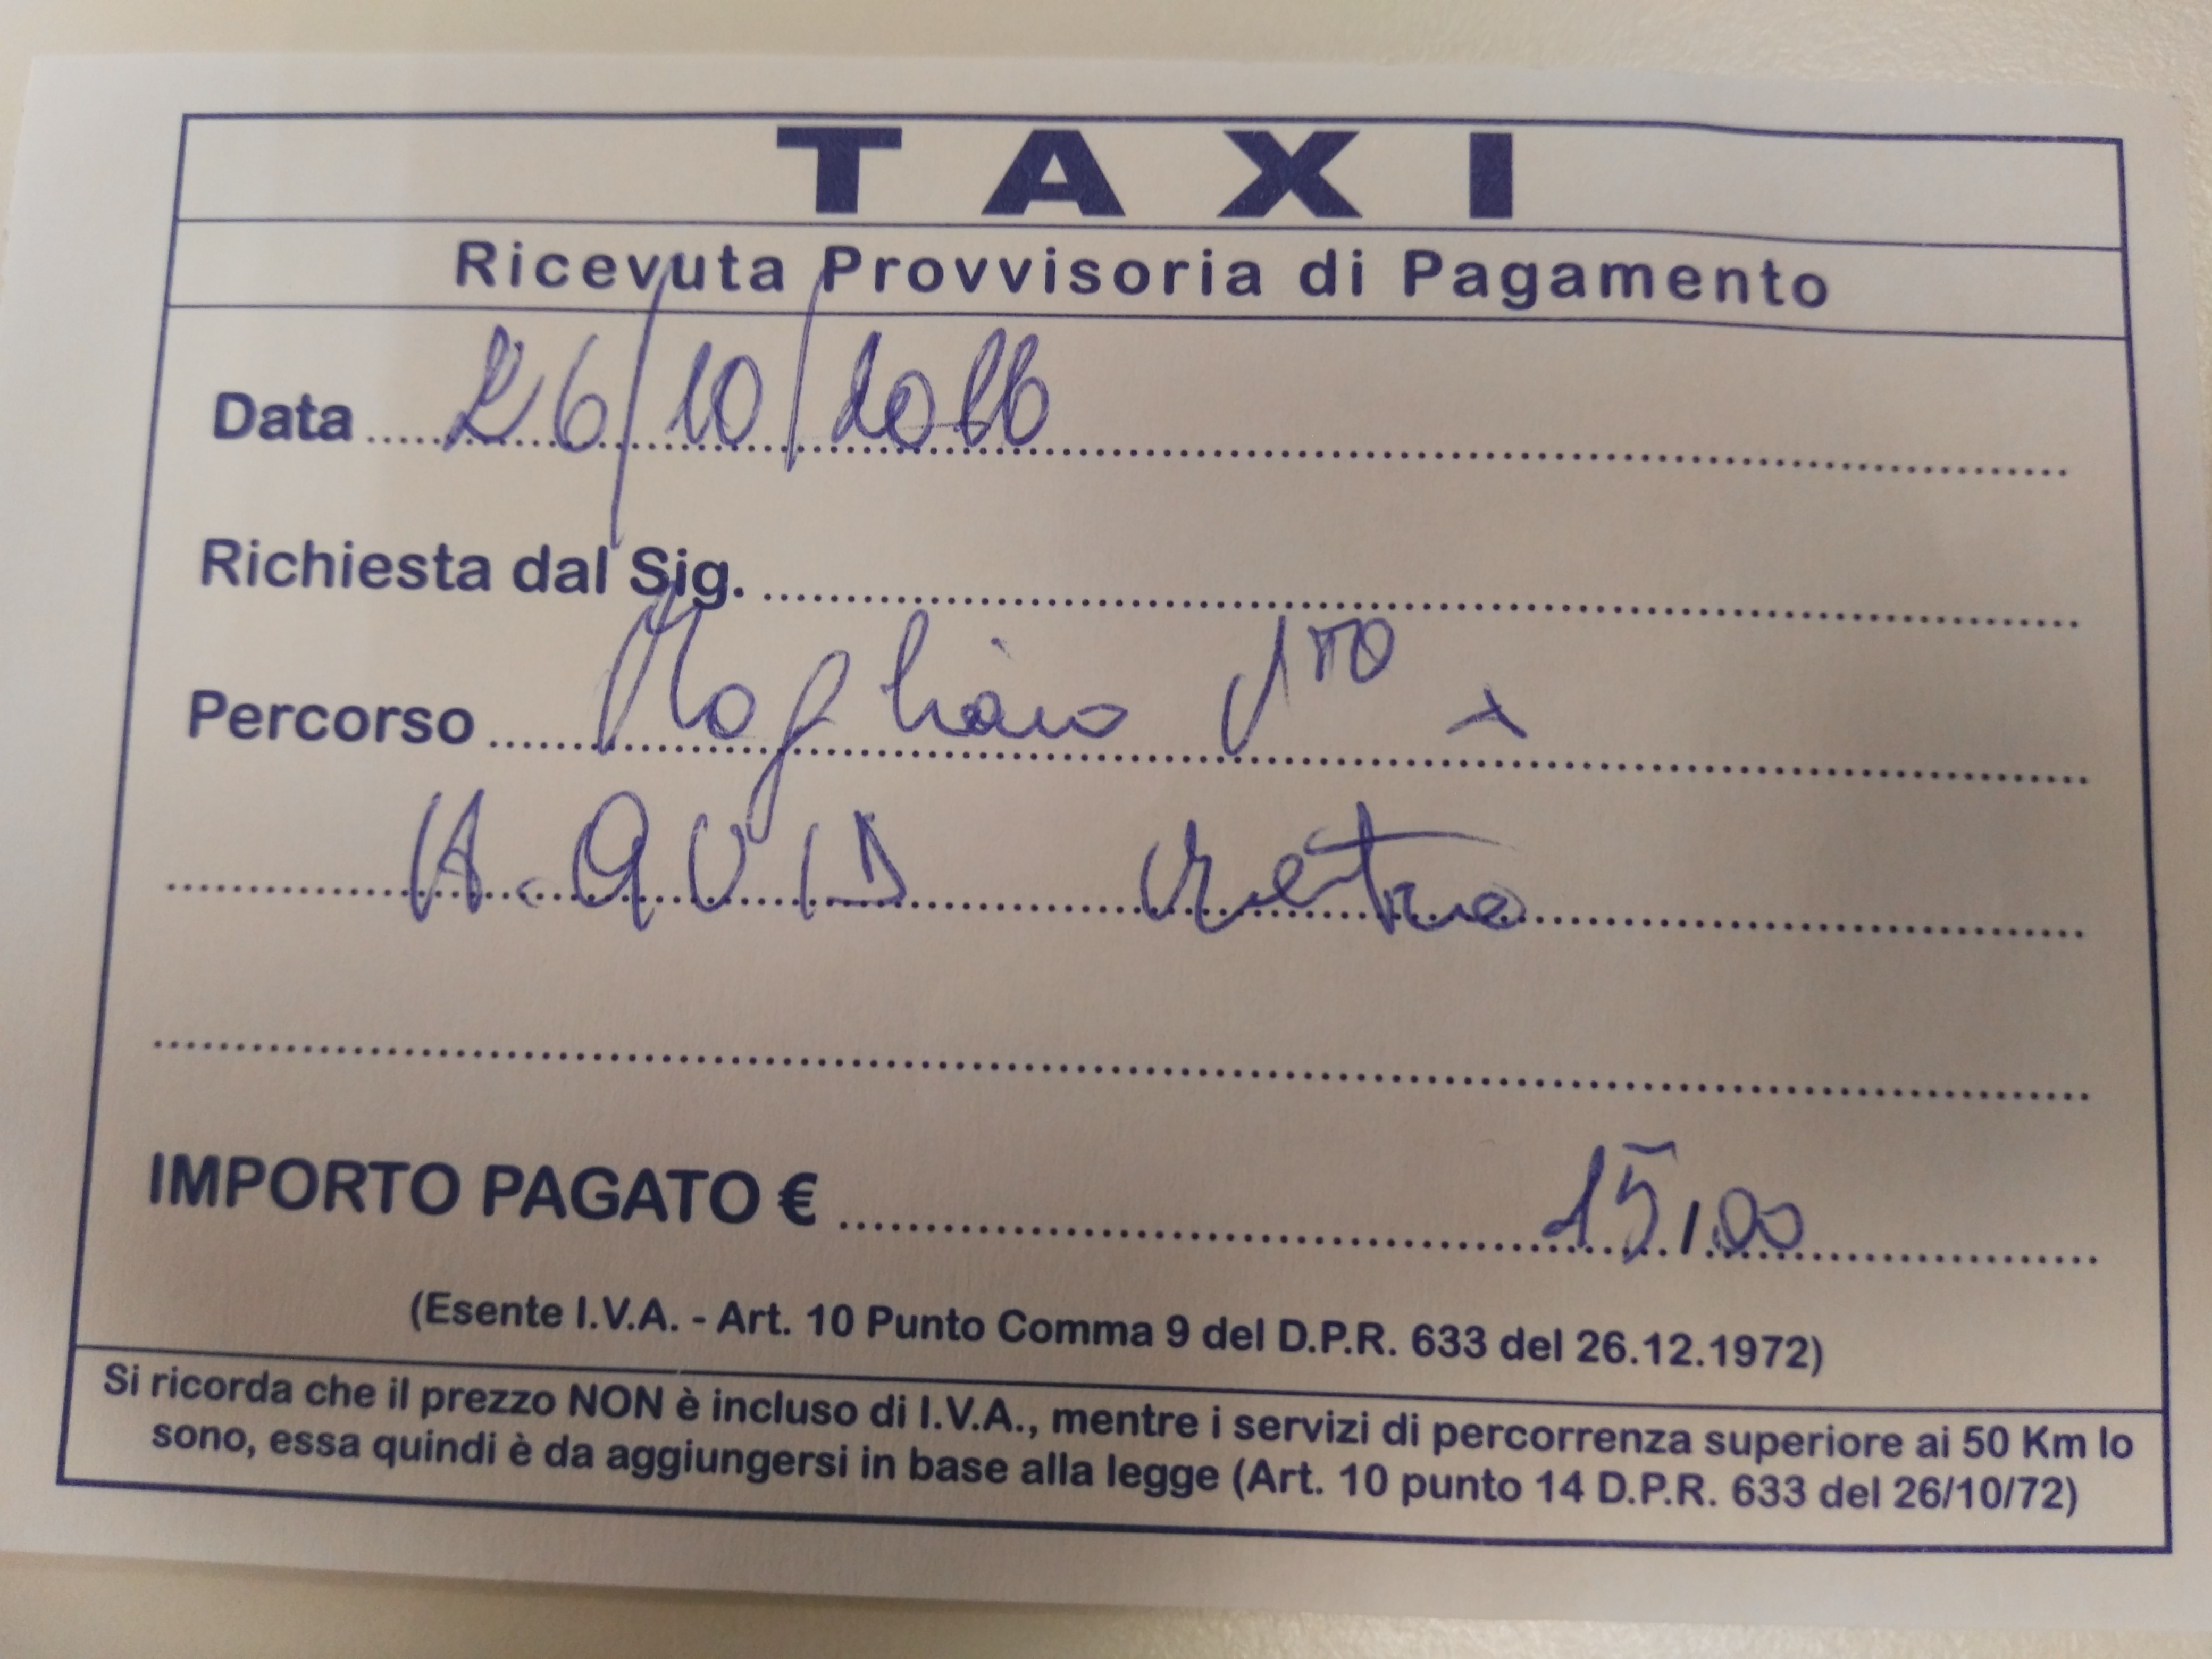 TAXI
Ricevuta Provvisoria di Pagamento
Data 26/10/20
Richiesta dal Sig.
Percorso Mogliano
IMPORTO PAGATO € 15,00
(Esente I.V.A. - Art. 10 Punto Comma 9 del D.P.R. 633 del 26.12.1972)
Si ricorda che il prezzo NON è incluso di I.V.A., mentre i servizi di percorrenza superiore ai 50 Km lo
sono, essa quindi è da aggiungersi in base alla legge (Art. 10 punto 14 D.P.R. 633 del 26/10/72)